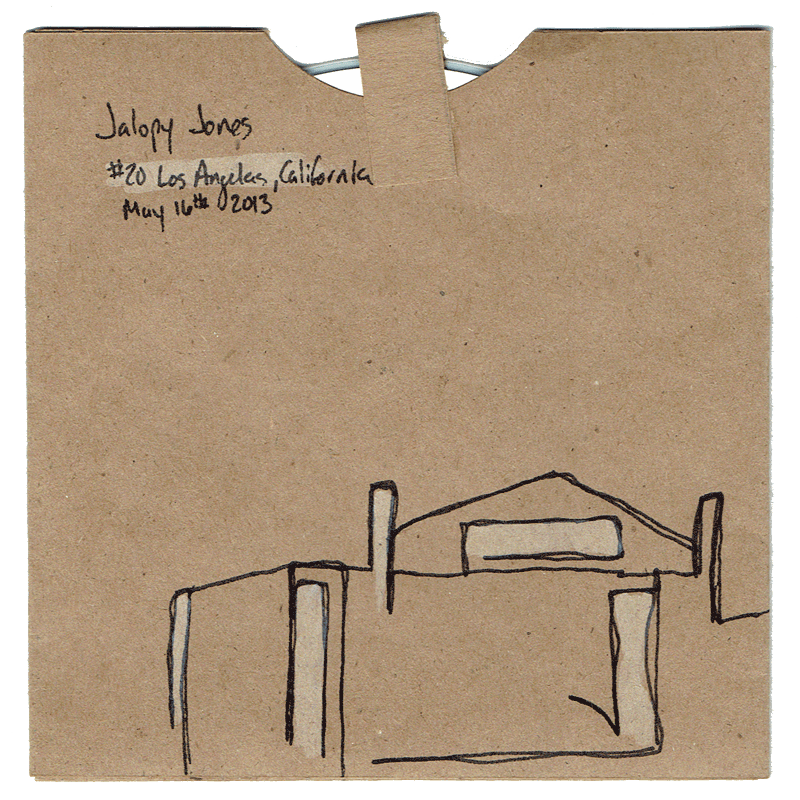 Jalopy Jones
#20 Los Angeles, California
May 16th 2013